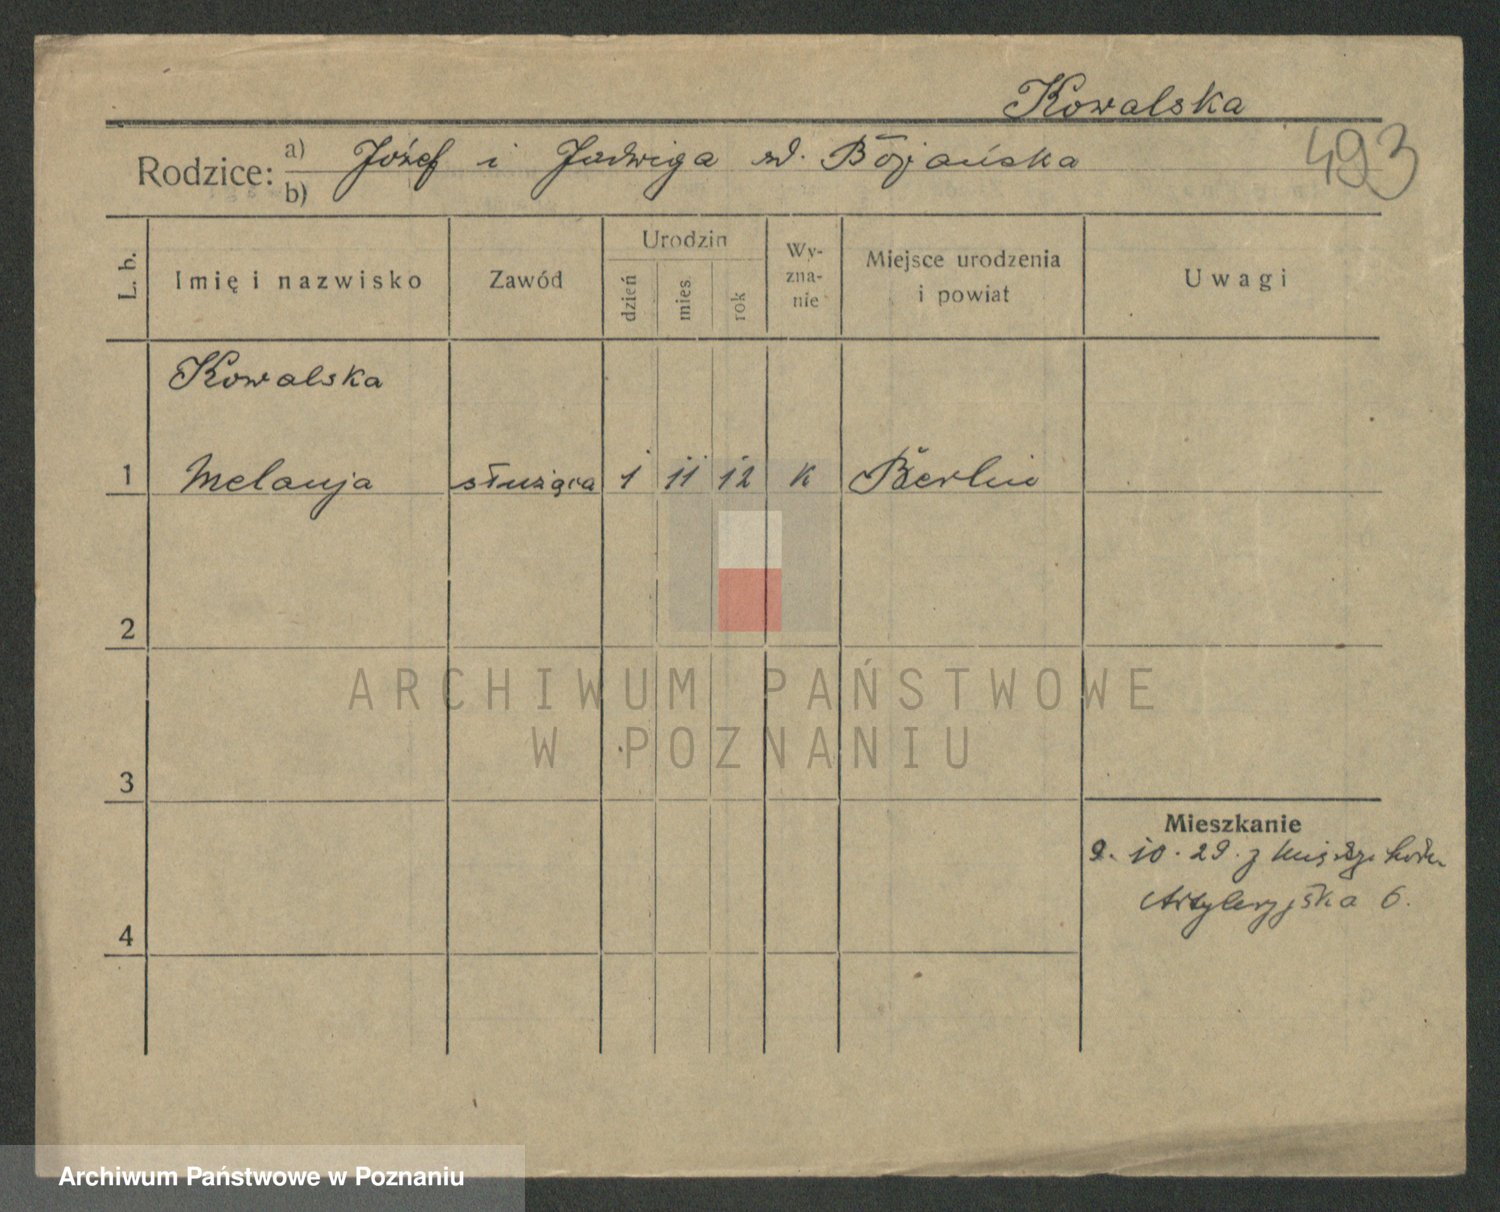 Kowalska
493
Rodzice: a) Józef i Jadwiga zd. Bojańska
b)
L. b. Imię i nazwisko Zawód Urodzin dzień mies rok Wy-zna-nie Miejsce urodzenia i powiat Uwagi
Kowalska
1 Melanja służąca 1 11 12 k Berlin
2
3
4
Mieszkanie
9. 10. 29. z
Artyleryjska 6.
ARCHIWUM PAŃSTWOWE
W POZNANIU
Archiwum Państwowe w Poznaniu